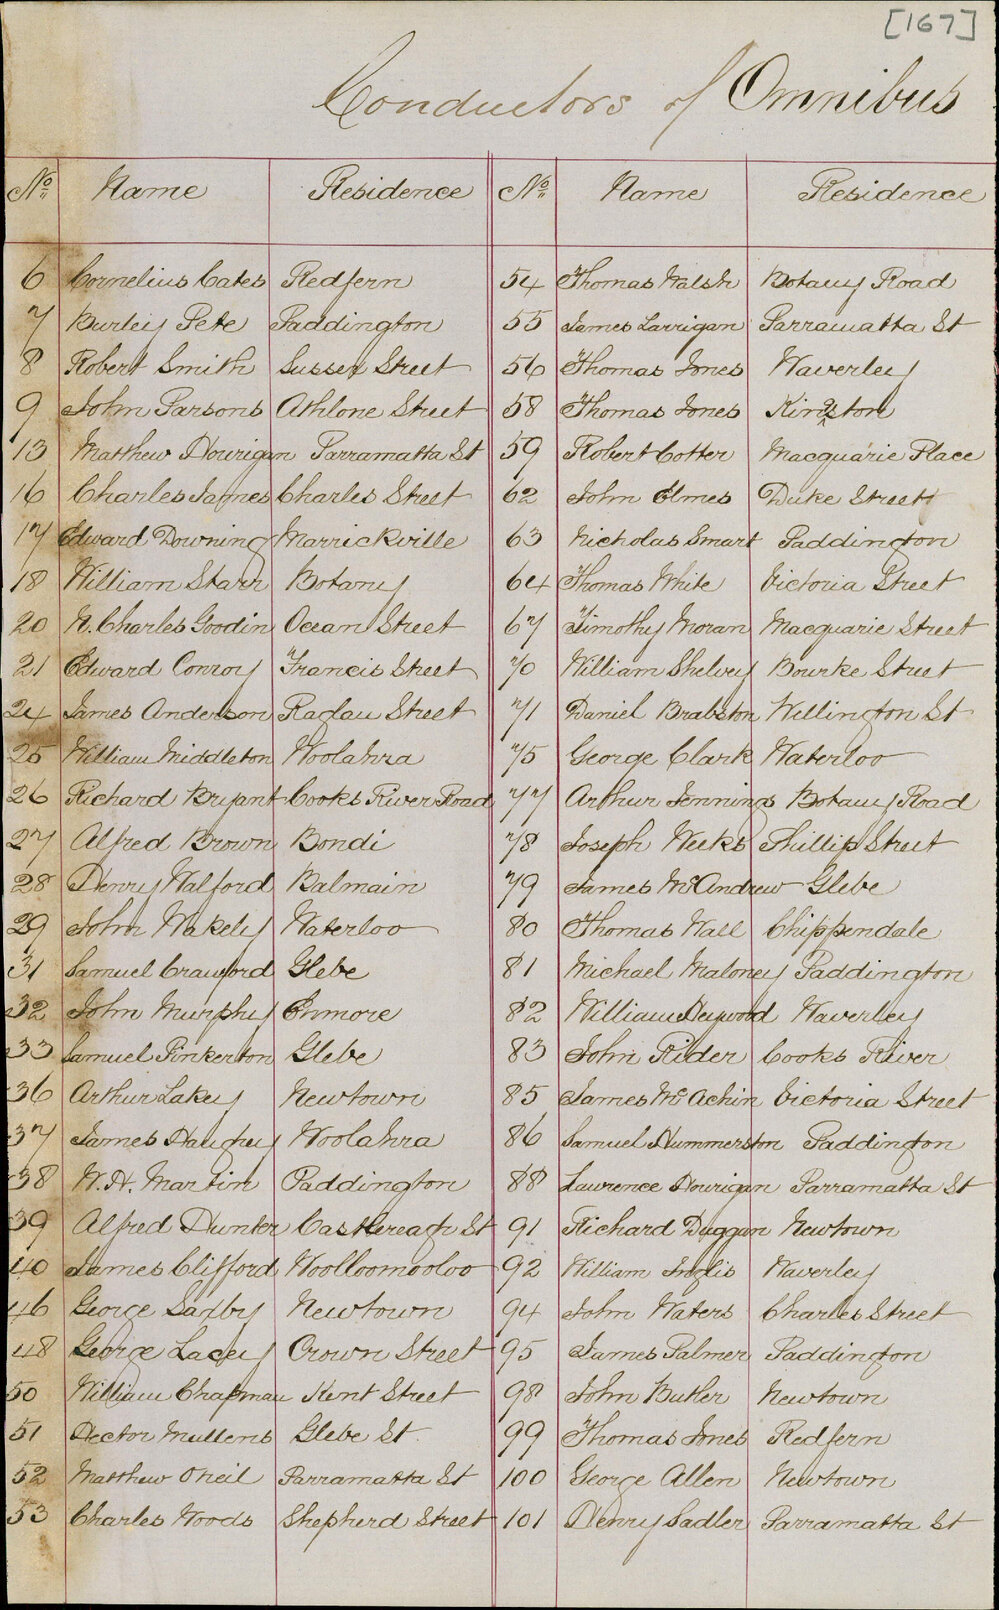 [167]
Conductors of Omnibus
No Name Residence No Name Residence
6 Cornelius Cates Redfern 54 Thomas Walsh Botany Road
7 Burley Pete Paddington 55 James Larrigan Parramatta St
8 Robert Smith Sussex Street 56 Thomas Jones Waverley
9 John Parsons Athlone Street 58 Thomas Jones Kingston
13 Matthew Hourigan Parramatta St 59 Robert Cotter Macquarie Place
16 Charles James Charles Street 62 John Elmes Duke Street
17 Edward Downing Marrickville 63 Nicholas Smart Paddington
18 William Starr Botany 64 Thomas White Victoria Street
20 N. Charles Goodin Ocean Street 67 Timothy Moran Macquarie Street
21 Edward Conroy Francis Street 70 William Shelvey Bourke Street
24 James Anderson Raglan Street 71 Daniel Brabston Wellington St
25 William Middleton Woolahra 75 George Clark Waterloo
26 Richard Bryant Cooks River Road 77 Arthur Jennings Botany Road
27 Alfred Brown Bondi 78 Joseph Weeks Phillip Street
28 Henry Walford Balmain 79 James McAndrew Glebe
29 John Wakely Waterloo 80 Thomas Wall Chippendale
31 Samuel Crawford Glebe 81 Michael Maloney Paddington
32 John Murphy Enmore 82 William Heywood Waverley
33 Samuel Pinkerton Glebe 83 John Rider Cooks River
36 Arthur Lakey Newtown 85 James McAchin Victoria Street
37 James Haughey Woolahra 86 Samuel Hummerston Paddington
38 W. H. Martin Paddington 88 Lawrence Hourigan Parramatta St
39 Alfred Hunter Castlereagh St 91 Richard Duggan Newtown
40 James Clifford Woolloomooloo 92 William Inglis Waverley
46 George Saxby Newtown 94 John Waters Charles Street
48 George Lacey Crown Street 95 James Palmer Paddington
50 William Chapman Kent Street 98 John Butler Newtown
51 Hector Mullens Glebe St 99 Thomas Jones Redfern
52 Matthew Oneil Parramatta St 100 George Allen Newtown
53 Charles Woods Shepherd Street 101 Henry Sadler Parramatta St